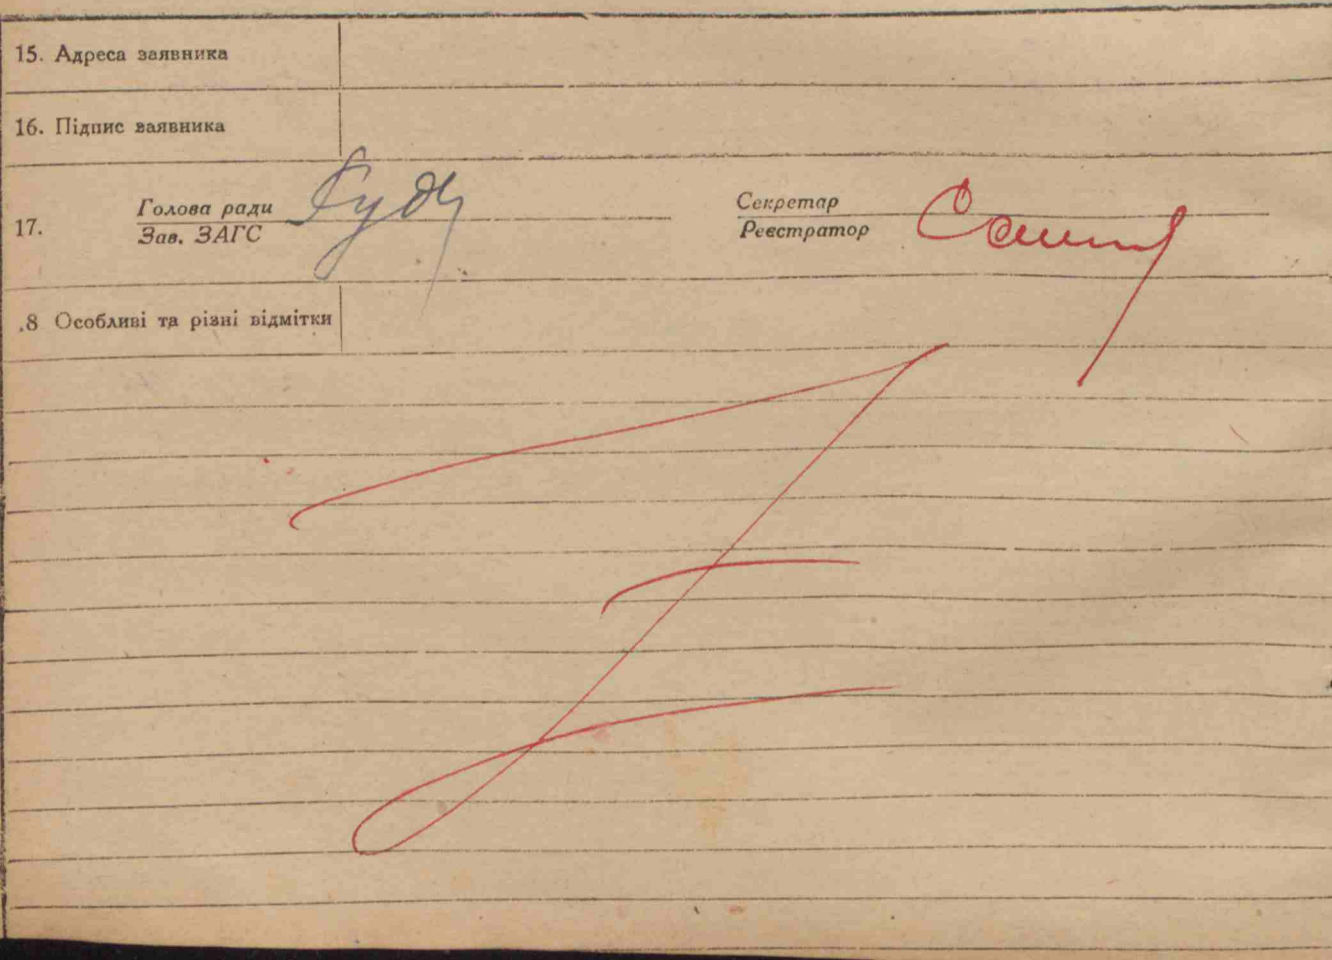 15. Адреса заявника
16. Підпис заявника
17. Голова ради Секретар
Зав. ЗАГС Реєстратор
.8 Особливі та різні відмітки